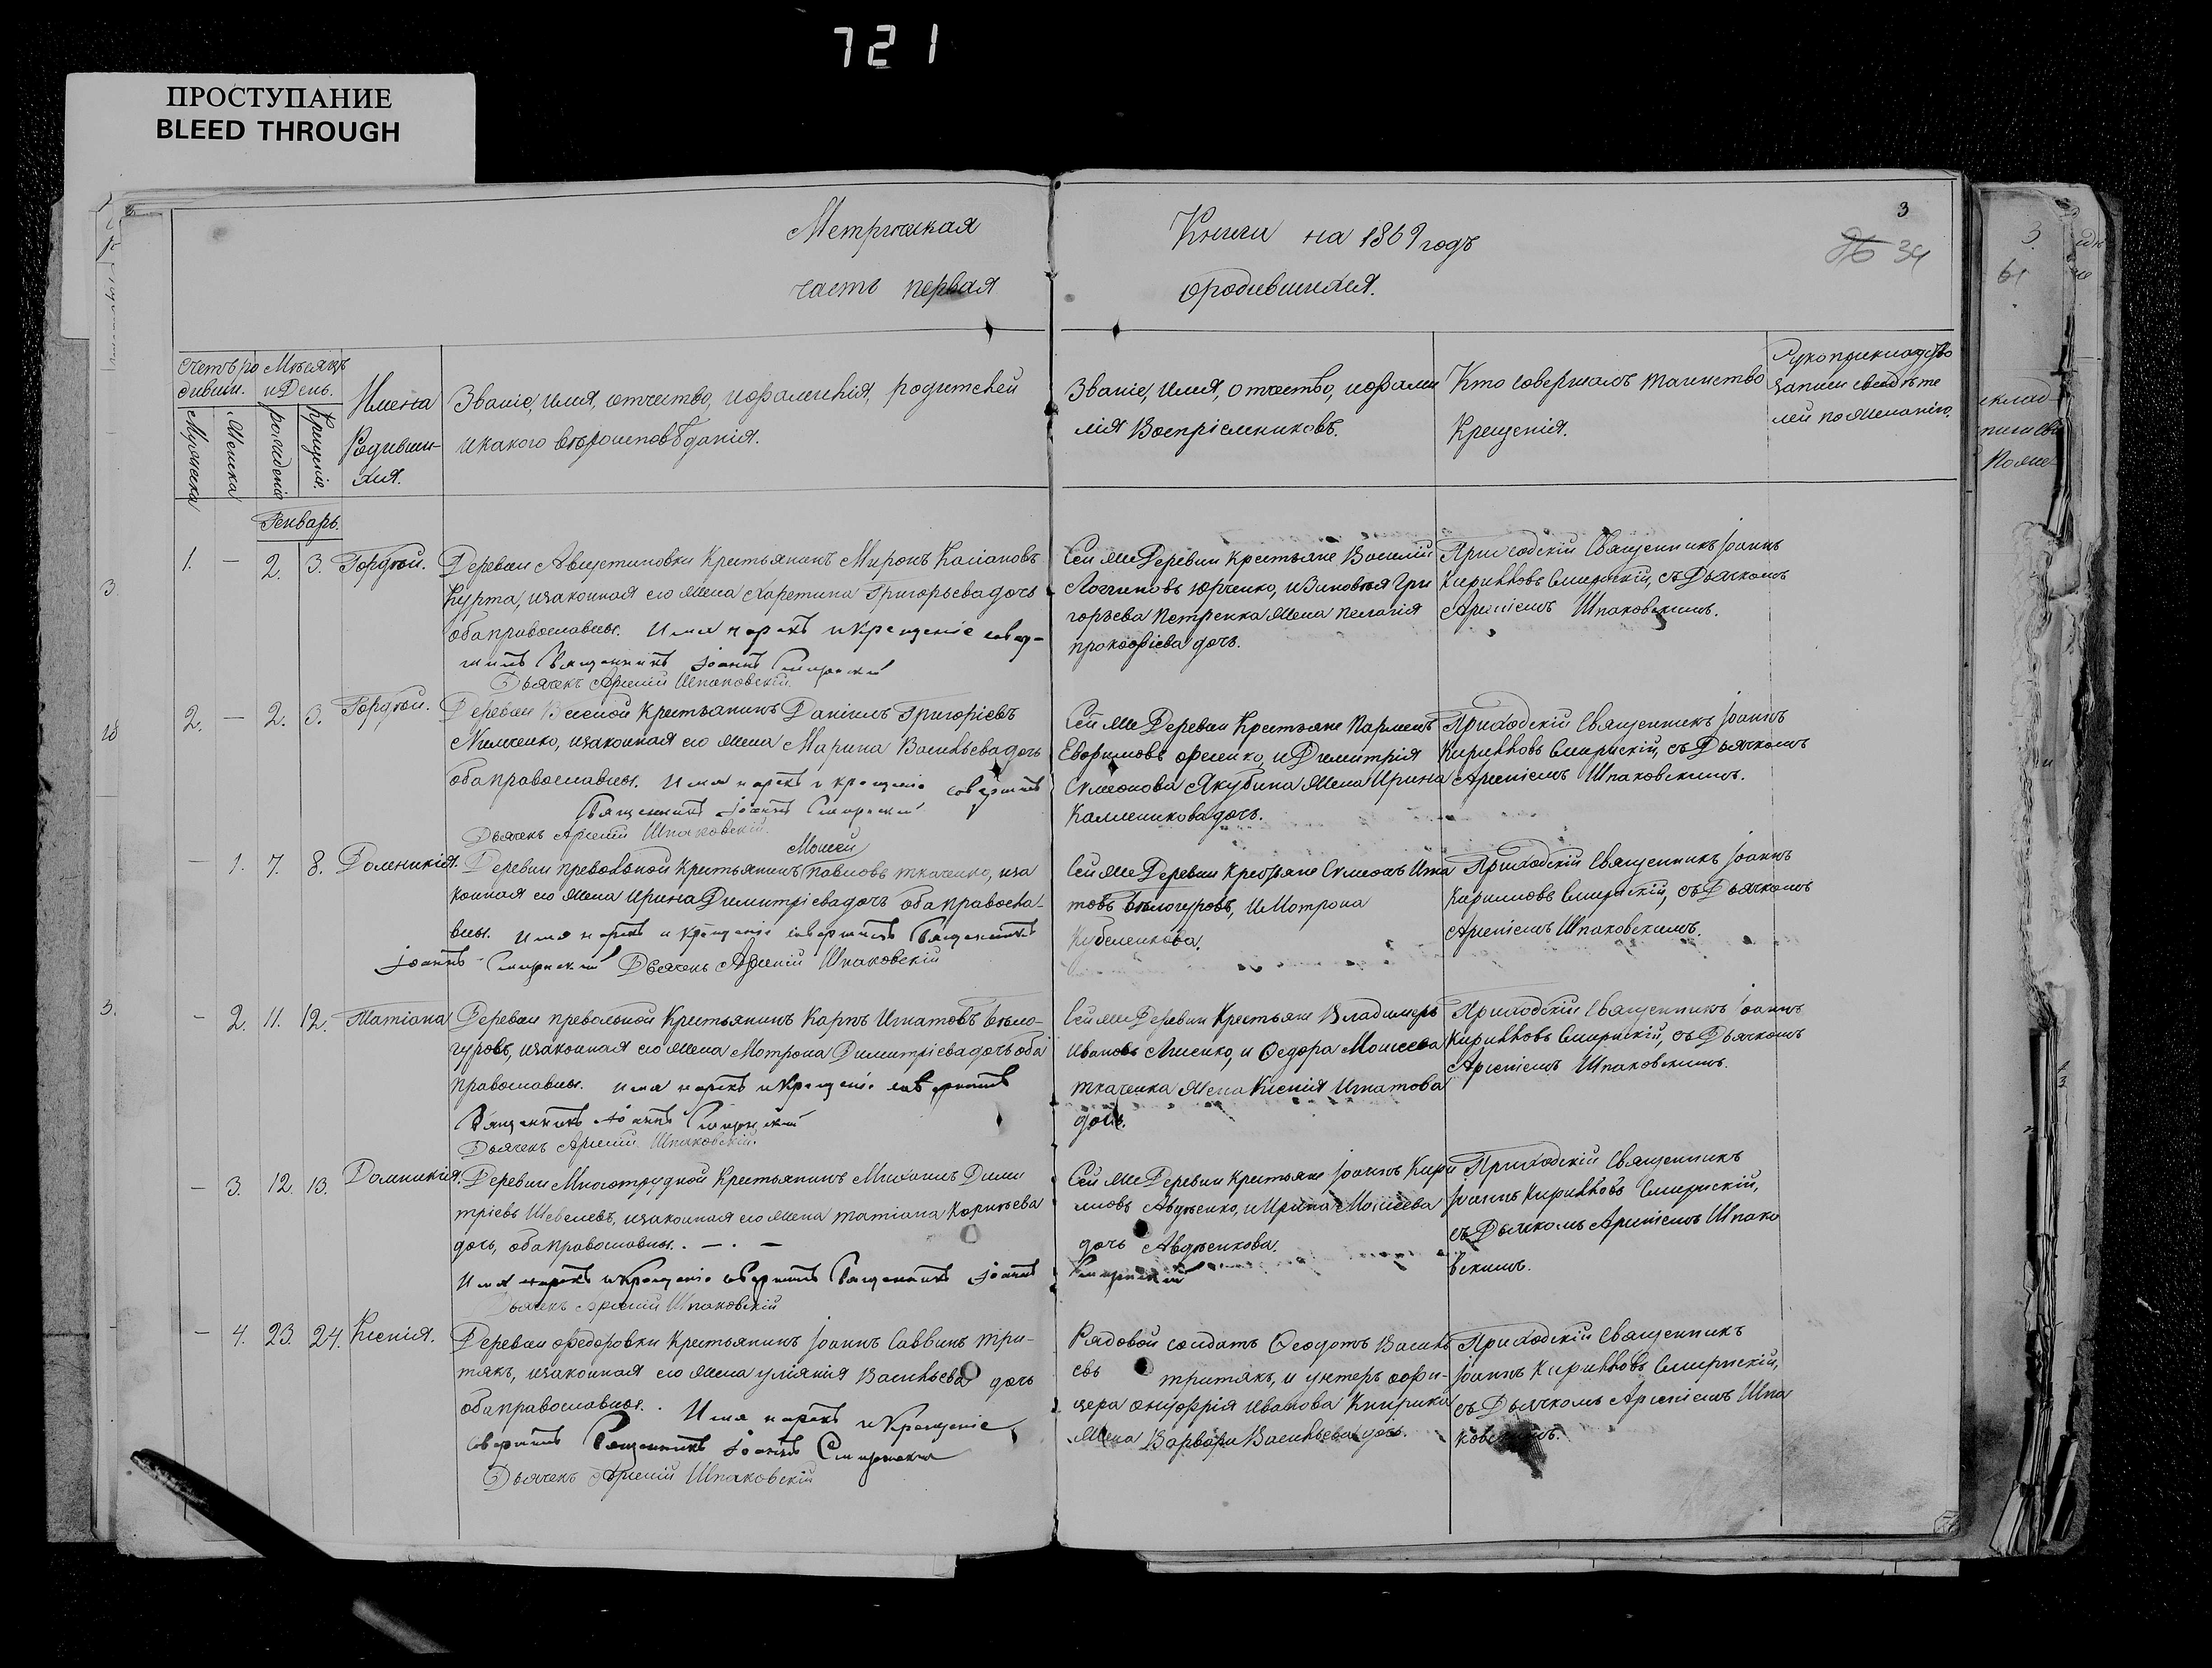 721
ПРОСТУПАНИЕ
BLEED THROUGH
Метрическая
часть первая
Книги на 1869 годъ
о родившихся.
3
34
Счетъ ро
дивши.
Мужеска
Женска
Мѣсяцъ
и День.
рожденія
Крещенія.
Имена
Родивши-
хся.
Званіе, имя, отчество, и фамилія, родителей
и какого вѣроисповѣданія.
Званіе, Имя, отчество, и фами
лія Воспріемниковъ.
Кто совершалъ таинство
Крещенія.
Рукоприкладство
записи свидѣте
лей по желанію.
Генварь.
1. — 2. 3. Гордѣй.
Деревни Августиновки Крестьянинъ Миронъ Касіановъ
Курта, и законная его жена Харетина Григорьева дочь
оба православны. Имя нарекъ и Крещеніе совер-
шилъ Священникъ Іоаннъ
Дьячекъ Арсеній Шпаковскій.
Сей же Деревни крестьяне Василій
Логгиновъ Юрченко, и Зиновѣя Гри
горьева Петренка жена Пелагія
прокофіева дочь.
Приходскій Священникъ Іоаннъ
Кирилловъ съ Дьячкомъ
Арсеніемъ Шпаковскимъ.
2. — 2. 3. Гордѣй.
Деревни Крестьянинъ Даніилъ Григоріевъ
и законная его жена Марина Васильева дочь
оба православны. Имя нарекъ и крещеніе совершилъ
Священникъ Іоаннъ
Дьячекъ Арсеній Шпаковскій.
Сей же Деревни Крестьяне Парменъ
Евфимовъ и Димитрія
Симеонова Якубина жена Ирина
Каленикова дочь.
Приходскій Священникъ Іоаннъ
Кирилловъ съ Дьячкомъ
Арсеніемъ Шпаковскимъ.
— 1. 7. 8. Доменикія.
Моисей
Деревни Превольной Крестьянинъ Павловъ Ткаченко, и за
конная его жена Ирина Димитріева дочь оба православ-
вны. Имя нарекъ и Крещеніе совершилъ Священникъ
Іоаннъ Дьячекъ Арсеній Шпаковскій
Сей же Деревни Крестьяне Симеонъ Игна
товъ Бѣлогуровъ, и Мотрона
Кирилловъ съ Дьячкомъ
Приходскій Священникъ Іоаннъ
Арсеніемъ Шпаковскимъ.
— 2. 11. 12. Татіана
Деревни Превольной Крестьянинъ Карпъ Игнатовъ Бѣло-
гуровъ, и законная его жена Мотрона Димитріева дочь оба
православны. Имя нарекъ и Крещеніе совершилъ
Священникъ Іоаннъ
Дьячекъ Арсеній Шпаковскій.
Сей же Деревни Крестьяне Владимеръ
Ивановъ и Ѳедора Моисеева
Ткаченка жена Ксенія Игнатова
дочь.
Приходскій Священникъ Іоаннъ
Кирилловъ съ Дьячкомъ
Арсеніемъ Шпаковскимъ.
— 3. 12. 13. Доминикія.
Деревни Многотрудной Крестьянинъ Михаилъ Дими
тріевъ Шевелевъ, и законная его жена Татіана Корнѣева
дочь, оба православны. — . —
Имя нарекъ и Крещеніе совершилъ Священникъ Іоаннъ
Дьячекъ Арсеній Шпаковскій
Сей же Деревни Крестьяне Іоаннъ Кири
лловъ Авдѣенко, и Ирина Моисеева
дочь Авдѣенкова.
Приходскій Священникъ
Іоаннъ Кирилловъ
съ Дьячкомъ Арсеніемъ Шпако
вскимъ.
— 4. 23. 24. Ксенія.
Деревни Федоровки Крестьянинъ Іоаннъ Саввинъ Три-
тякъ, и законная его жена Уліянія Васильева дочь
оба православны. Имя нарекъ и Крещеніе
совершилъ Священникъ Іоаннъ
Дьячекъ Арсеній Шпаковскій
Рядовой солдатъ Ѳеодотъ Василь
евъ Тритякъ, и унтеръ офи-
цера Онуфрія Иванова жена
Варвара Васильева дочь.
Приходскій Священникъ
Іоаннъ Кирилловъ
съ Дьячкомъ Арсеніемъ Шпа